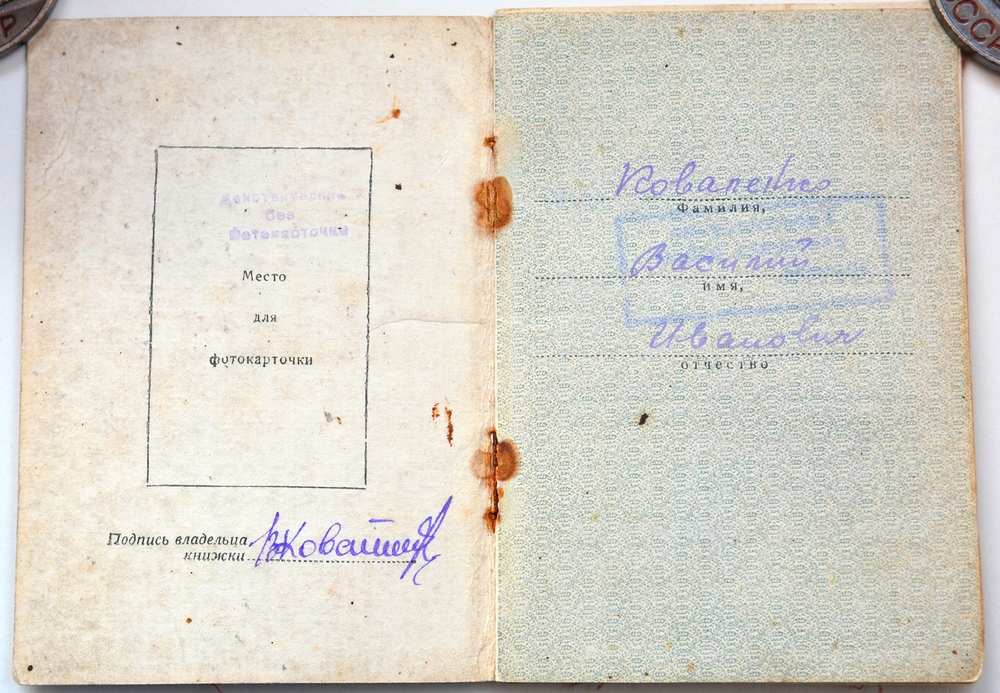 Действительно
без
фотокарточки
Место
для
фотокарточки
Подпись владельца
книжки
Коваленко
Фамилия,
Василий
имя,
Иванович
отчество
СССР